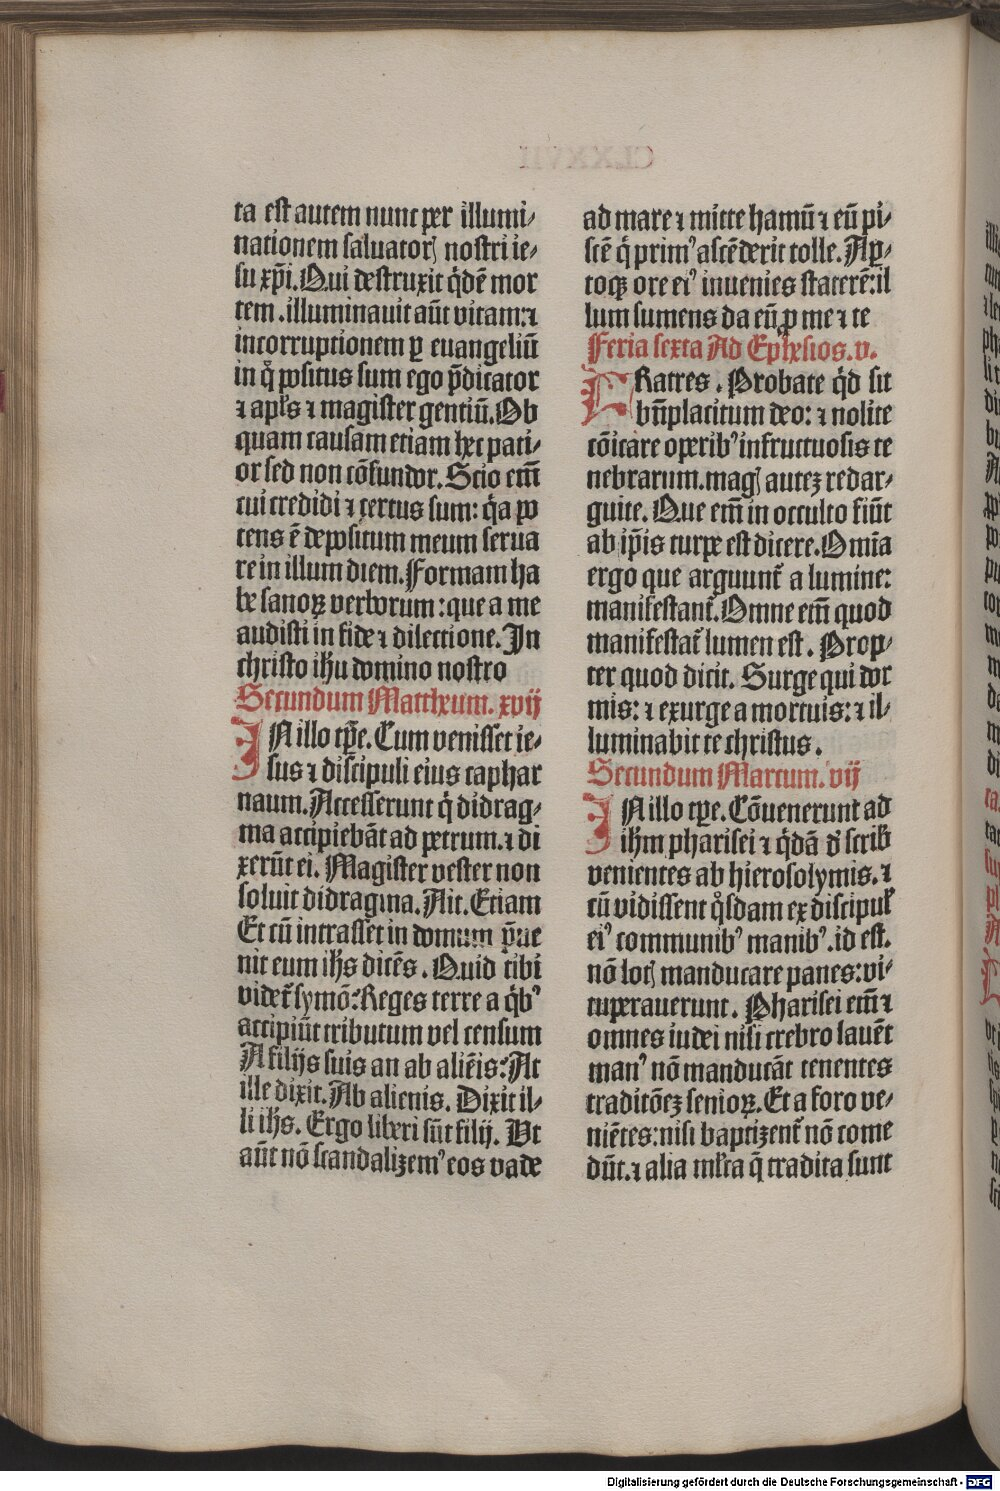 ta est autem nunc per illumi⸗
nationem saluatorꝭ nostri ie⸗
su xp̄i. Qui destruxit q̇dē mor
tem . illuminauit aūt vitam: ⁊
incorruptionem ꝑ euangeliū
in q̊ positus sum ego p̄dicator
⁊ apl̄s ⁊ magister gentiū. Ob
quam causam etiam hec pati⸗
or sed non cōfundor. Scio em̄
cui credidi ⁊ certus sum: q̇a po
tens ē depositum meum serua
re in illum diem. Formam ha
be sanoꝝ verborum: que a me
audisti in fide ⁊ dilectione. In
christo ihu domino nostro
Secundum Mattheum. xvij
IN illo tꝑe. Cum venisset ie⸗
sus ⁊ discipuli eius caphar
naum. Accesserunt q̇ didrag⸗
ma accipiebāt ad petrum. ⁊ di
xerūt ei. Magister vester non
soluit didragma. Ait. Etiam
Et cū intrasset in domum p̄ue
nit eum ihs dicēs . Quid tibi
videt᷑ symō? Reges terre a q̇bꝰ
accipiūt tributum vel censum
A filijs suis an ab aliēis? At
ille dixit. Ab alienis. Dixit il⸗
li ihs. Ergo liberi sūt filij. Ut
aūt nō scandalizemꝰ eos vade
ad mare ⁊ mitte hamū ⁊ eū pi⸗
scē q̇ primꝰ ascēderit tolle. Aꝑ⸗
toqꝫ ore eiꝰ inuenies staterē: il
lum sumens da eū ꝓ me ⁊ te
Feria sexta Ad Ephesios. v.
FRatres . Probate q̇d sit
bn̄placitum deo: ⁊ nolite
cōicare operibꝰ infructuosis te
nebrarum. magꝭ auteꝫ redar⸗
guite. Que em̄ in occulto fiūt
ab ip̄is turpe est dicere. Omīa
ergo que arguunt᷑ a lumine:
manifestant᷑. Omne em̄ quod
manifestat᷑ lumen est . Prop⸗
ter quod dicit. Surge qui dor
mis: ⁊ exurge a mortuis: ⁊ il⸗
luminabit te christus .
Secundum Marcum. vij
IN illo tꝑe. Cōuenerunt ad
ihm pharisei ⁊ q̇dā d̓ scrib̓
venientes ab hierosolymis. ⁊
cū vidissent q̊sdam ex discipul̓
eiꝰ communibꝰ manibꝰ. id est.
nō lotꝭ manducare panes: vi⸗
tuperauerunt . Pharisei em̄ ⁊
omnes iudei nisi crebro lauēt
manꝰ nō manducāt tenentes
traditōeꝫ senioꝝ. Et a foro ve⸗
niētes: nisi baptizent᷑ nō come
dūt. ⁊ alia ml̓ta q̄ tradita sunt
Digitalisierung gefördert durch die Deutsche Forschungsgemeinschaft - DFG